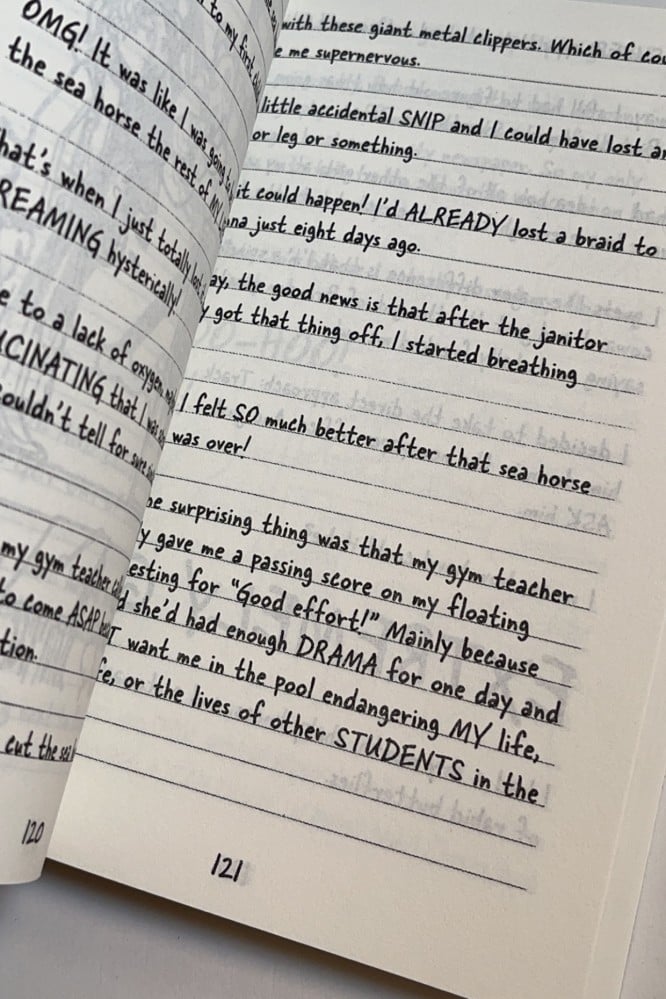 to my first
OMG! It was like I was going to
the sea horse the rest of MY
That's when I just totally lost
REAMING hysterically!
e to a lack of oxygen,
CINATING that I was
couldn't tell for sure
my gym teacher
to come ASAP
tion.
cut the sea
120
with these giant metal clippers. Which of cou
e me supernervous.
little accidental SNIP and I could have lost an
or leg or something.
it could happen! I'd ALREADY lost a braid to
nna just eight days ago.
ay, the good news is that after the janitor
y got that thing off, I started breathing
I felt SO much better after that sea horse
was over!
he surprising thing was that my gym teacher
y gave me a passing score on my floating
esting for "Good effort!" Mainly because
d she'd had enough DRAMA for one day and
T want me in the pool endangering MY life,
fe, or the lives of other STUDENTS in the
121